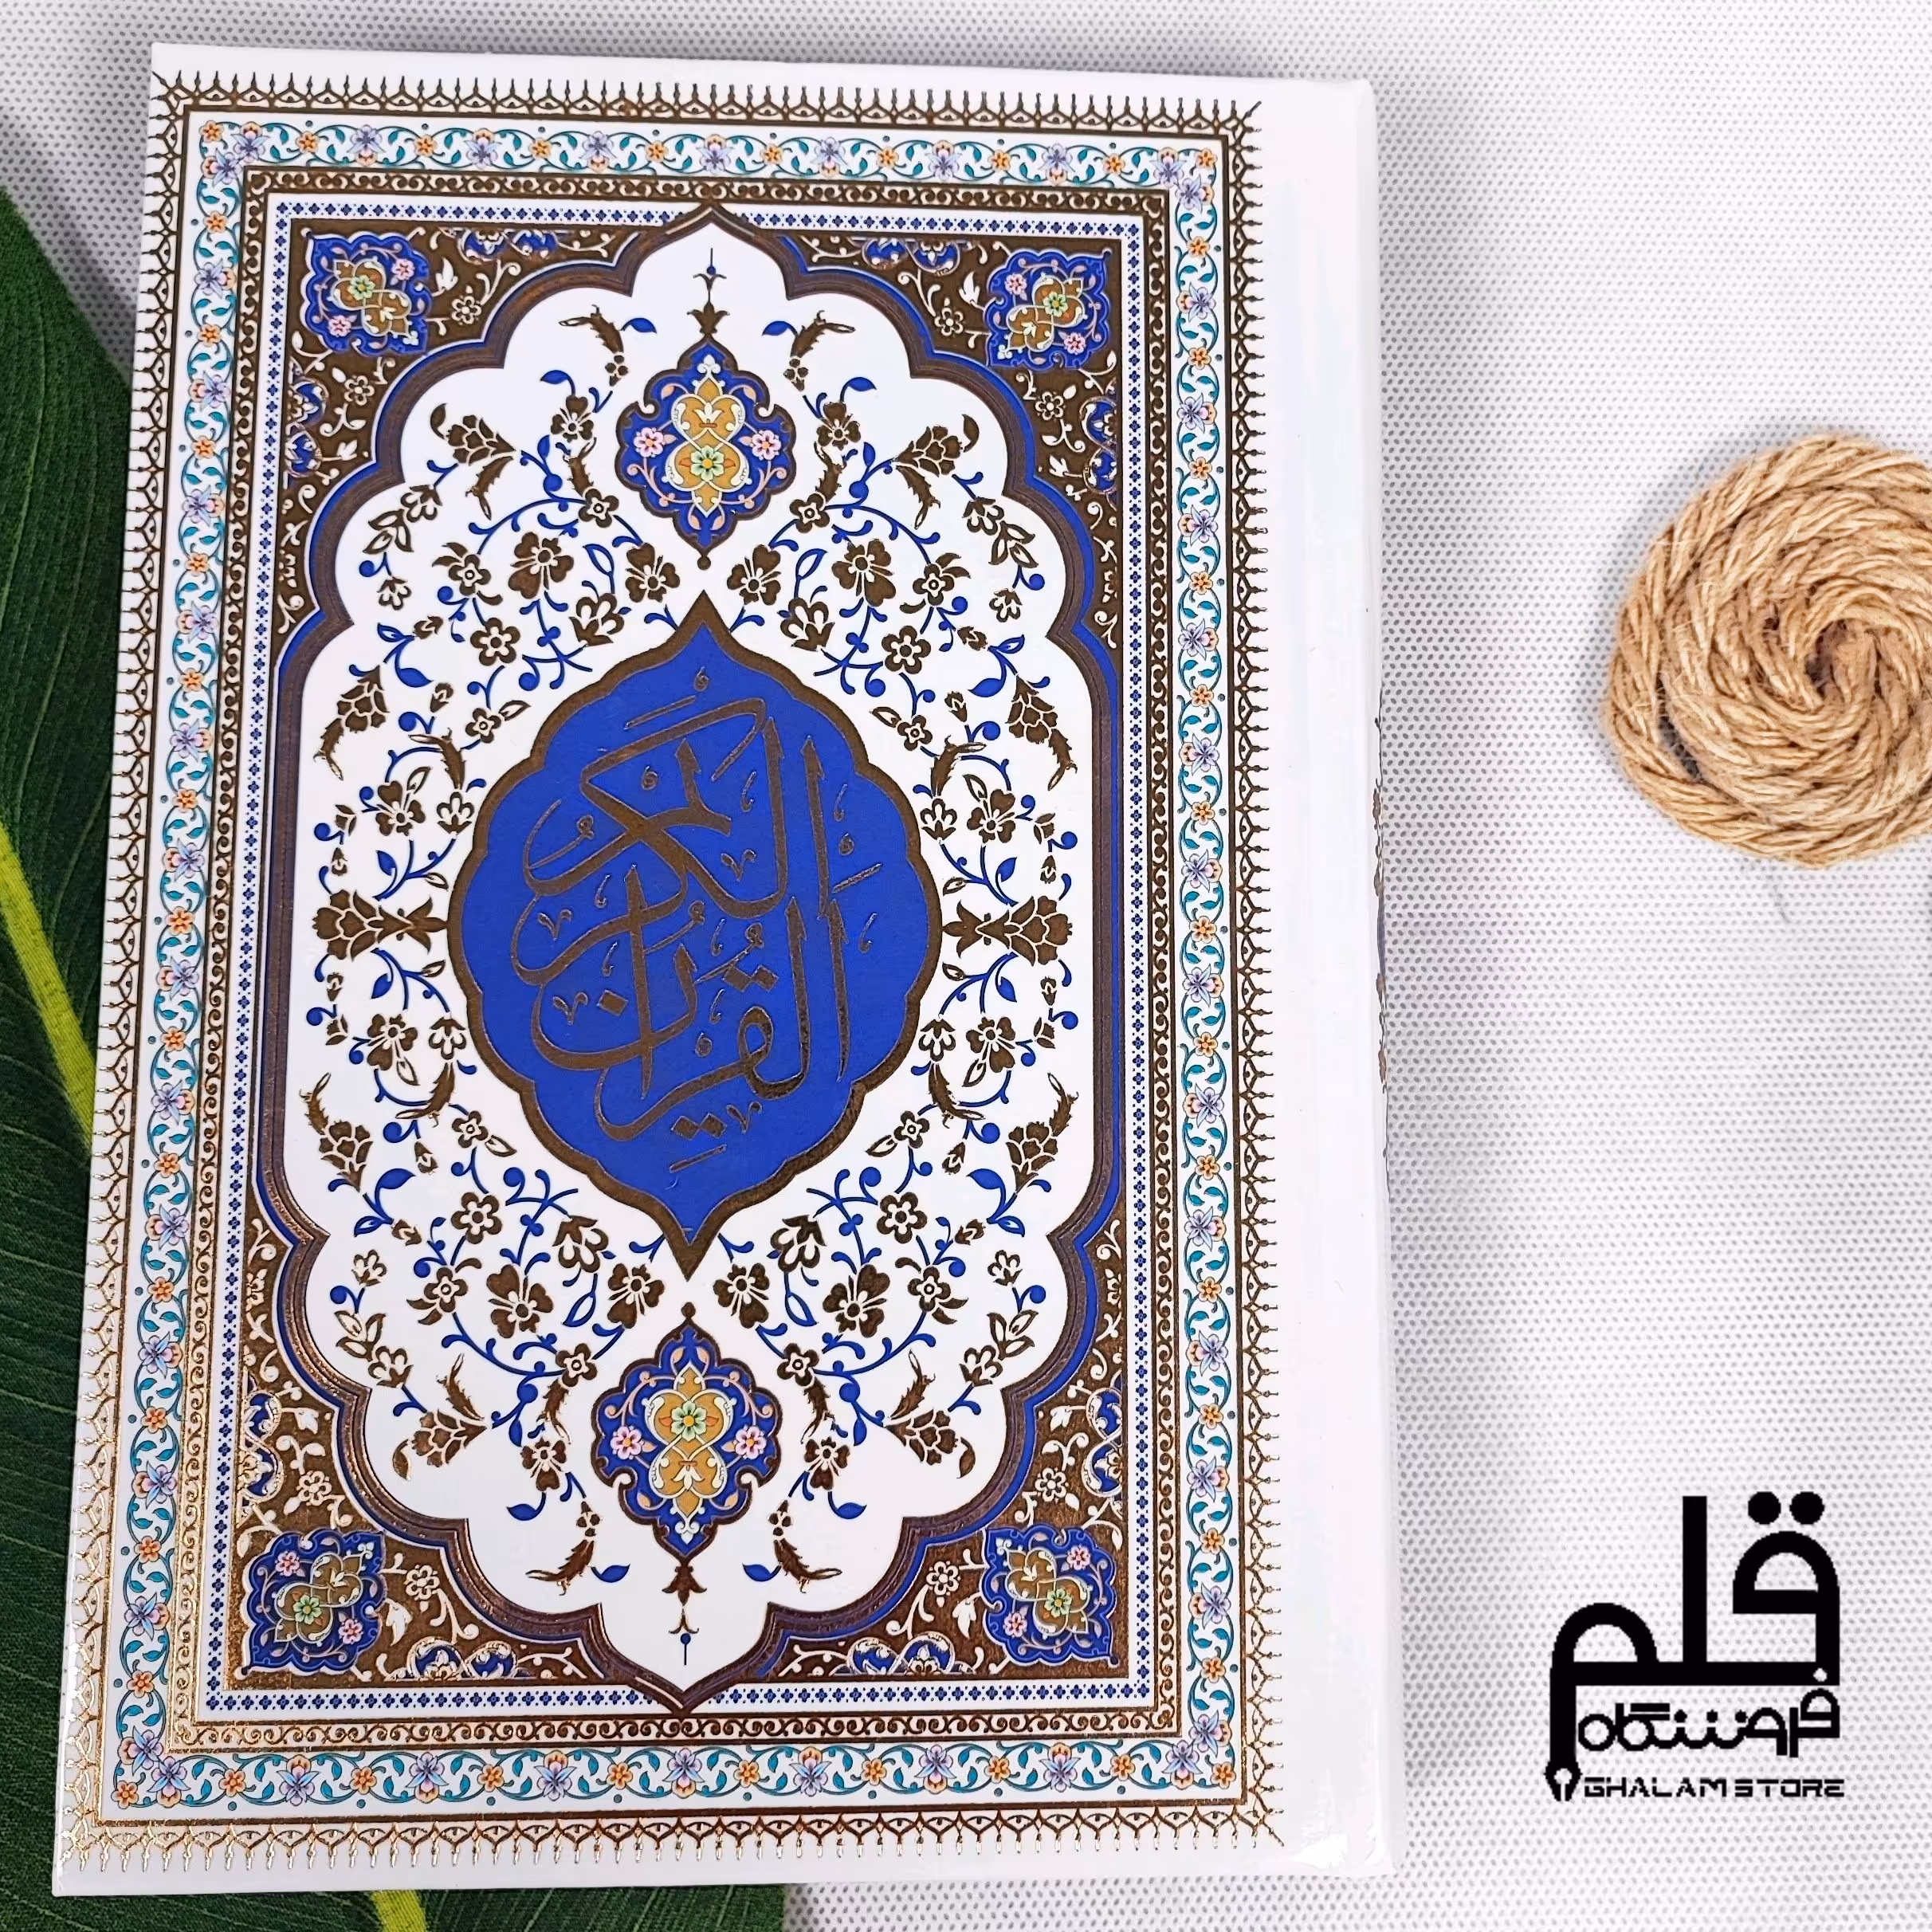 القرآن
الكريم
قلم
فروشگاه
GHALAM STORE